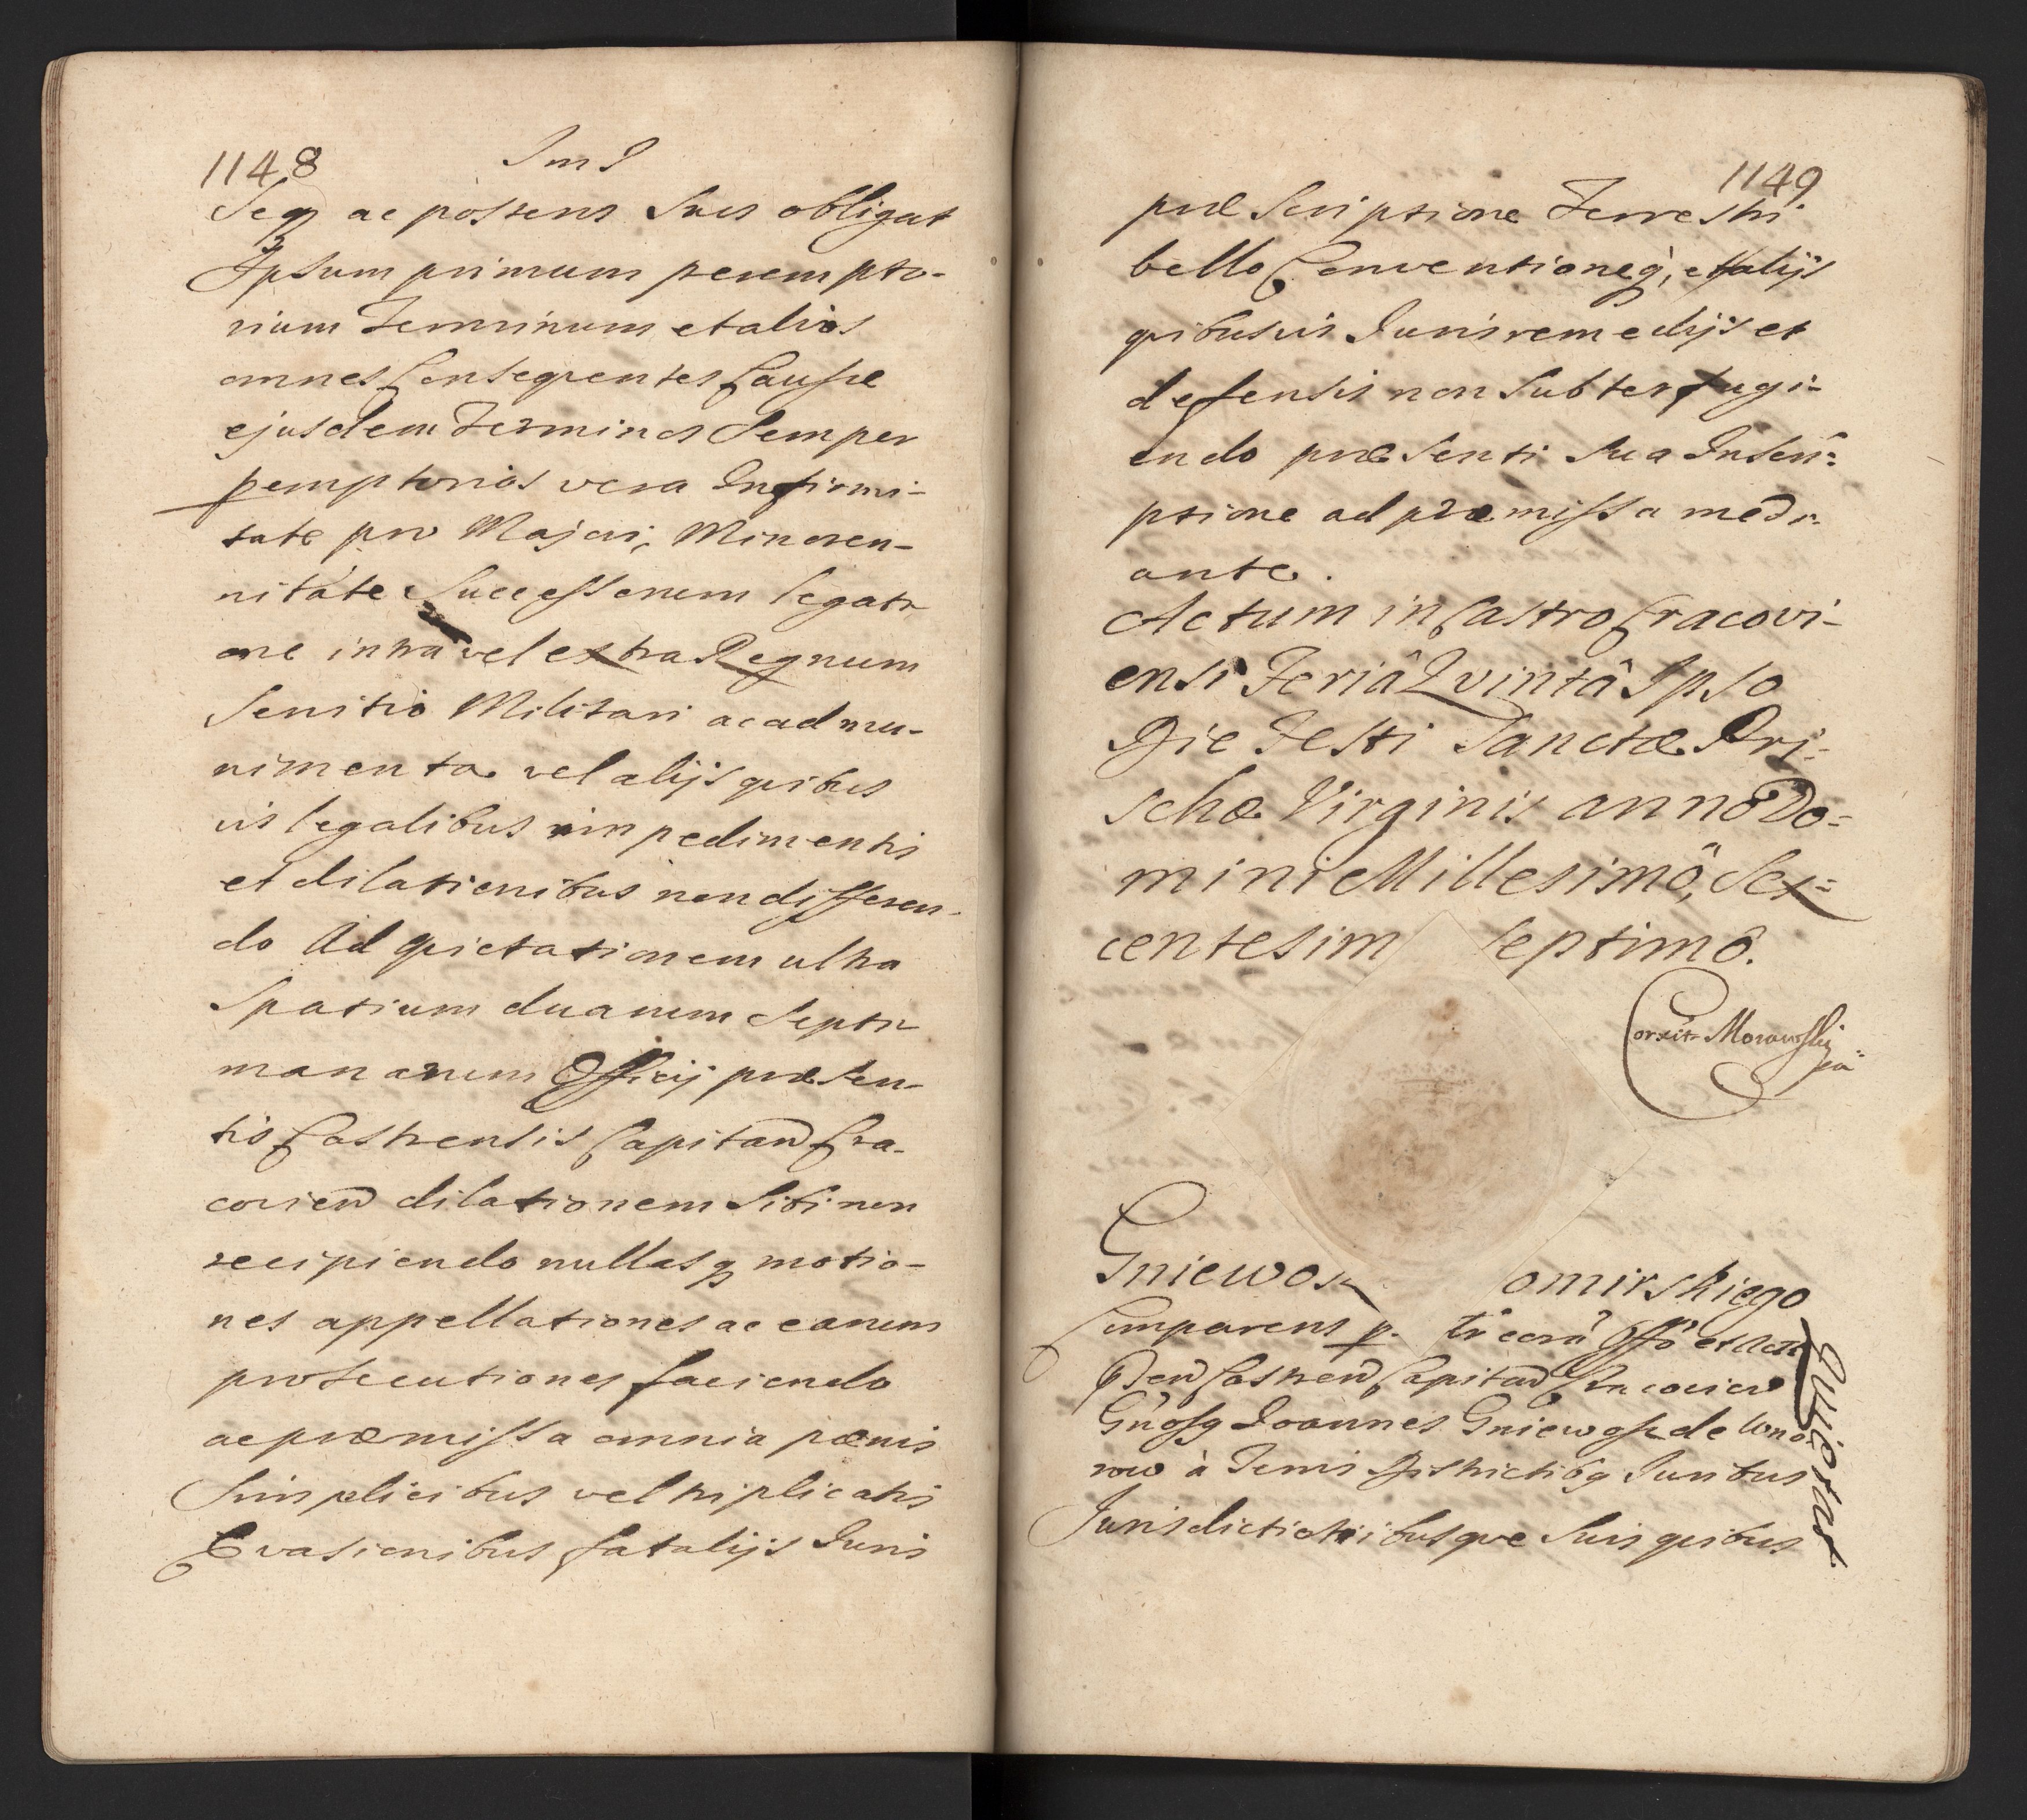 1148
Seq3 ac posteros suos obligat
Ipsum primum perempto-
rium Terminum et alios
omnes Consequentes Causæ
ejusdem Terminos Semper
pemptorios vera Infirmi-
tate pro Majori, Minoren-
nitate Successorum legati-
one intra vel extra Regnum
Servitio Militari ac ad mu-
nimenta vel alijs quibus
vis legalibus impedimentis
et dilationibus non differen-
do Ad quietationem ultra
Spatium duarum Septi-
manarum Officij præsen-
tis Castrensis Capitan Cra-
covien dilationem Sibi non
recipiendo nullasq3 motio-
nes appellationes ac earum
prosecutiones faciendo
ac præmissa omnia pœnis
Simplicibus vel triplicatis
Evasionibus fatalijs Juris
1149
præscriptione Terrestri
bello Conventioneq3, et alijs
quibusvis Juris remedijs et
defensis non Subterfugi-
endo præsenti Sua Inscri-
ptione ad præmissa medi-
ante.
Actum in Castro Cracovi-
ensi Feriâ Qvintâ Ipso
Die Festi Sanctæ Pri-
schæ Virginis anno Do-
mini Millesimô, Sex-
centesim Septimô.
Correxit Morawski
Gniewosz omirskiego
Comparens p. tr corã Offõ et Actis
Pñ Castren Capitan Cracovien
Gñosq3 Joannes Gniewosz de
à Terris Districtibq3 Juribus
Jurisdictionibusque Suis quibus
Qvietat